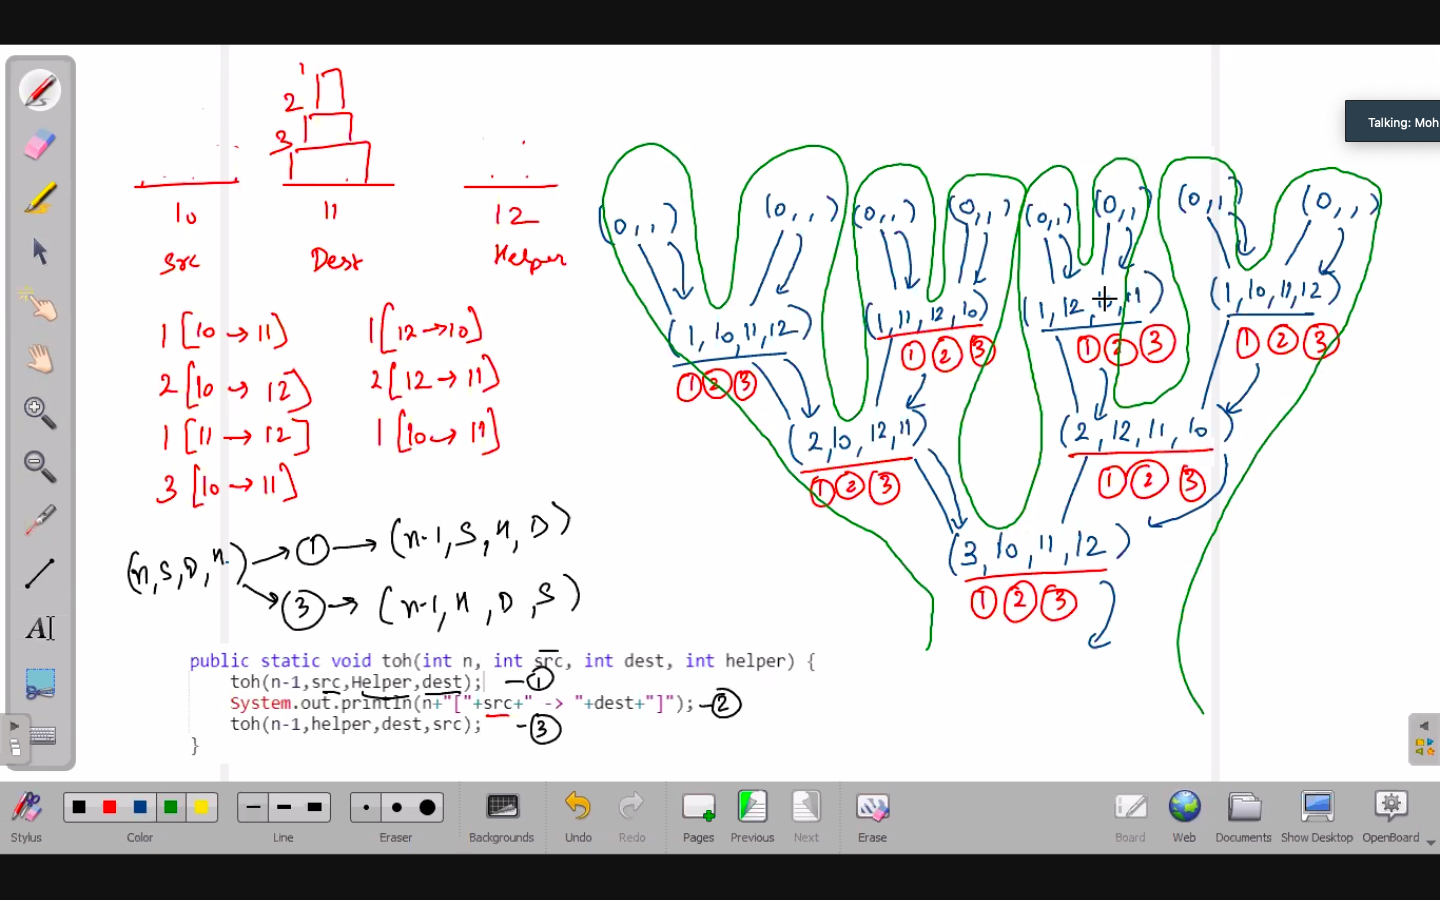 Talking: Moh
1
2
3
10
11
12
Src
Dest
Helper
1 [10 → 11]
2 [10 → 12]
1 [11 → 12]
3 [10 → 11]
1 [12 → 10]
2 [12 → 11]
1 [10 → 11]
(n, S, D, H) → ① → (n-1, S, H, D)
→ ③ → (n-1, H, D, S)
(0, , ) (0, , ) (0, , ) (0, , ) (0, , ) (0, , ) (0, , ) (0, , )
(1, 10, 11, 12) (1, 11, 12, 10) (1, 12, , 11) (1, 10, 11, 12)
① ② ③ ① ② ③ ① ② ③ ① ② ③
(2, 10, 12, 11) (2, 12, 11, 10)
① ② ③ ① ② ③
(3, 10, 11, 12)
① ② ③
public static void toh(int n, int src, int dest, int helper) {
toh(n-1,src,Helper,dest); - ①
System.out.println(n+"["+src+" -> "+dest+"]"); - ②
toh(n-1,helper,dest,src); - ③
}
AI
Stylus Color Line Eraser Backgrounds Undo Redo Pages Previous Next Erase Board Web Documents Show Desktop OpenBoard